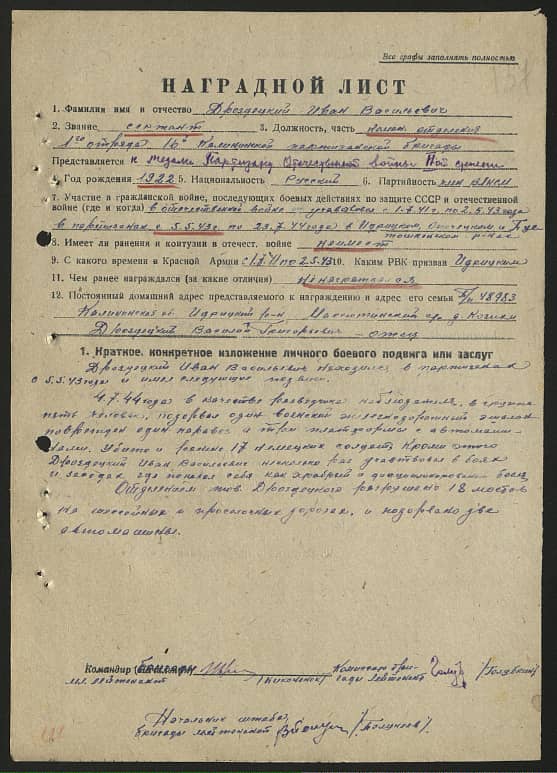 Все графы заполнять полностью
НАГРАДНОЙ ЛИСТ
1. Фамилия имя и отчество Дроздецкий Иван Васильевич
2. Звание сержант 3. Должность, часть коман. отделения
1го отряда 16й Калининской партизанской бригады
Представляется к медали Партизану Отечественной войны II ой степени
4. Год рождения 1922 5. Национальность Русский 6. Партийность член ВЛКСМ
7. Участие в гражданской войне, последующих боевых действиях по защите СССР и отечественной
войне (где и когда) в отечественной войне участвовал с 1.7.41 г. по 2.5.43 года
в партизанах с 5.5.43 г. по 23.7.44 года в Идрицком, Опочецком и
районах
8. Имеет ли ранения и контузии в отечест. войне неимеет
9. С какого времени в Красной Армии с 1.7.41 по 2.5.43 10. Каким РВК призван Идрицким
11. Чем ранее награждался (за какие отличия) Ненаграждался
12. Постоянный домашний адрес представляемого к награждению и адрес его семьи 48983
Калининская об. Идрицкий р-н д.
Дроздецкий Василий Григорьевич — отец
1. Краткое, конкретное изложение личного боевого подвига или заслуг
Дроздецкий Иван Васильевич находился в партизанах
с 5.5.43 года и имел следующие подвиги.
4.7.44 года в качестве разведчика наблюдателя, в группе
пять человек, подорвал один воинский железнодорожный эшелон
поврежден один паравоз и три платформы с автомаши-
нами. Убито и ранено 17 немецких солдат. Кроме этого
Дроздецкий Иван Васильевич несколько раз участвовал в боях
и засадах где показал себя как храбрый и дисциплинированый боец.
Отделением тов. Дроздецкого разрушено 18 мостов
на шоссейных и просёлочных дорогах, и подорвано две
автомашины.
Командир бригады
мл. лейтенант
Комиссар бри-
гады лейтенант
Начальник штаба
бригады лейтенант